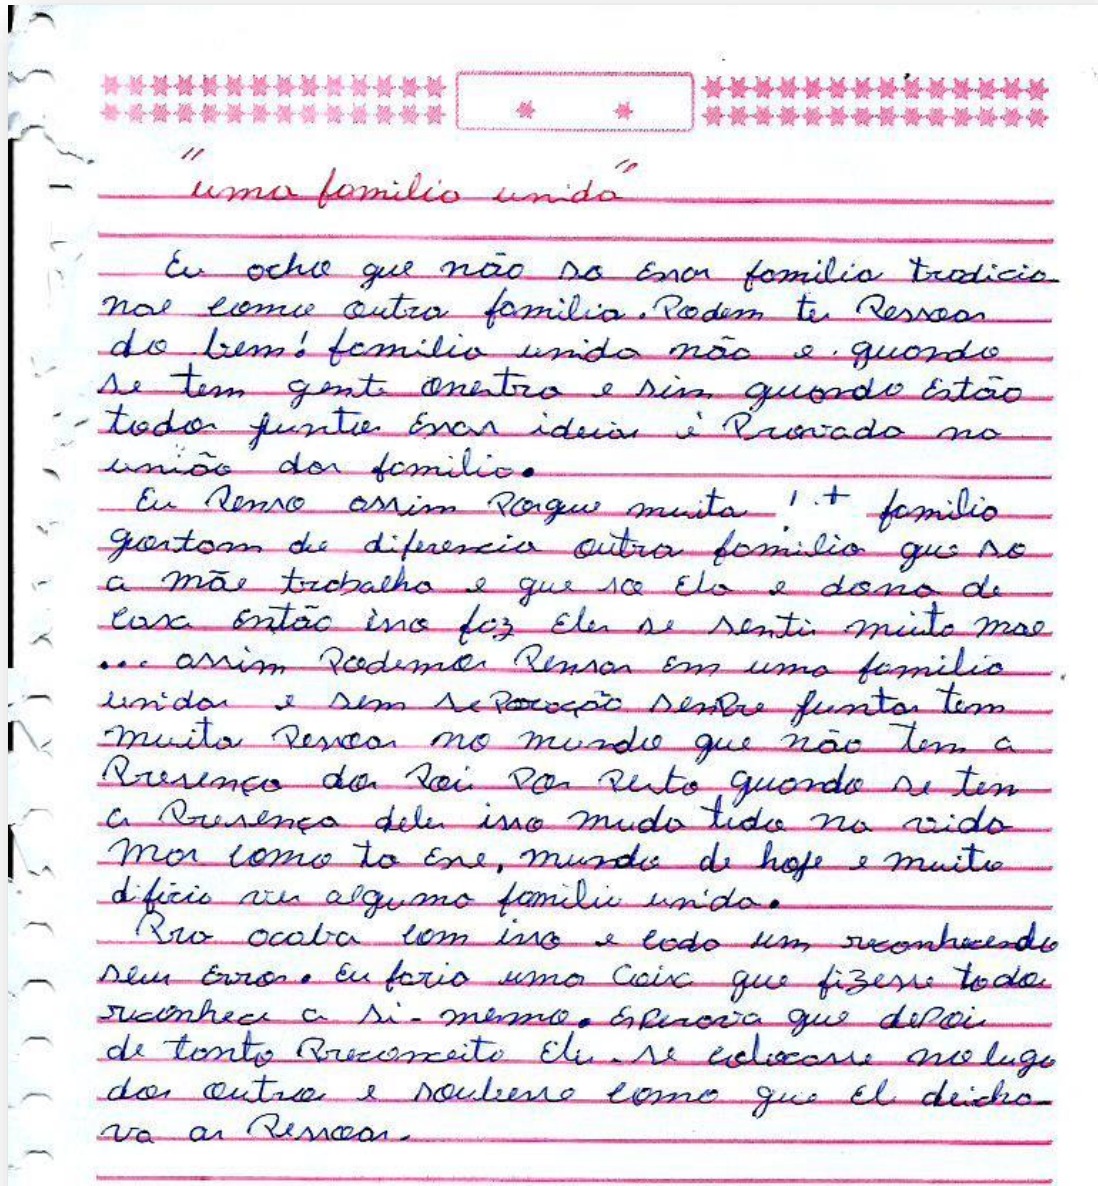 "uma familia unida"
Eu acho que não so essas familia tradicio
nal como outra familia. Podem te Pessoas
do bem! familia unida não e quando
se tem gente onestra e sim quando Estão
todos juntos Essas ideias é Provado na
união das familia.
Eu Penso assim Porque muita familia
gostam de diferencia outra familia que so
a mãe trabalha e que so Ela e dona de
casa Então isso faz Eles se senti muito mal
... assim Podemos Pensar Em uma familia
unidas e sem sePoração senPre juntos tem
muita Pessoas no mundo que não tem a
Presença dos Pai Por Perto quando se tem
a Presença deles isso muda tudo na vida
Mas como ta Esse, mundo de hoje e muito
dificio ver alguma familia unida.
Pra acaba com isso e cada um reconhecendo
seus Erros. Eu faria uma Coisa que fizesse todos
reconhece a si-mesmo. esPerava que dePois
de tanto Preconceito Ele-se colocasse no luga
dos outros e soubesse como que El deicha-
va as Pessoas.